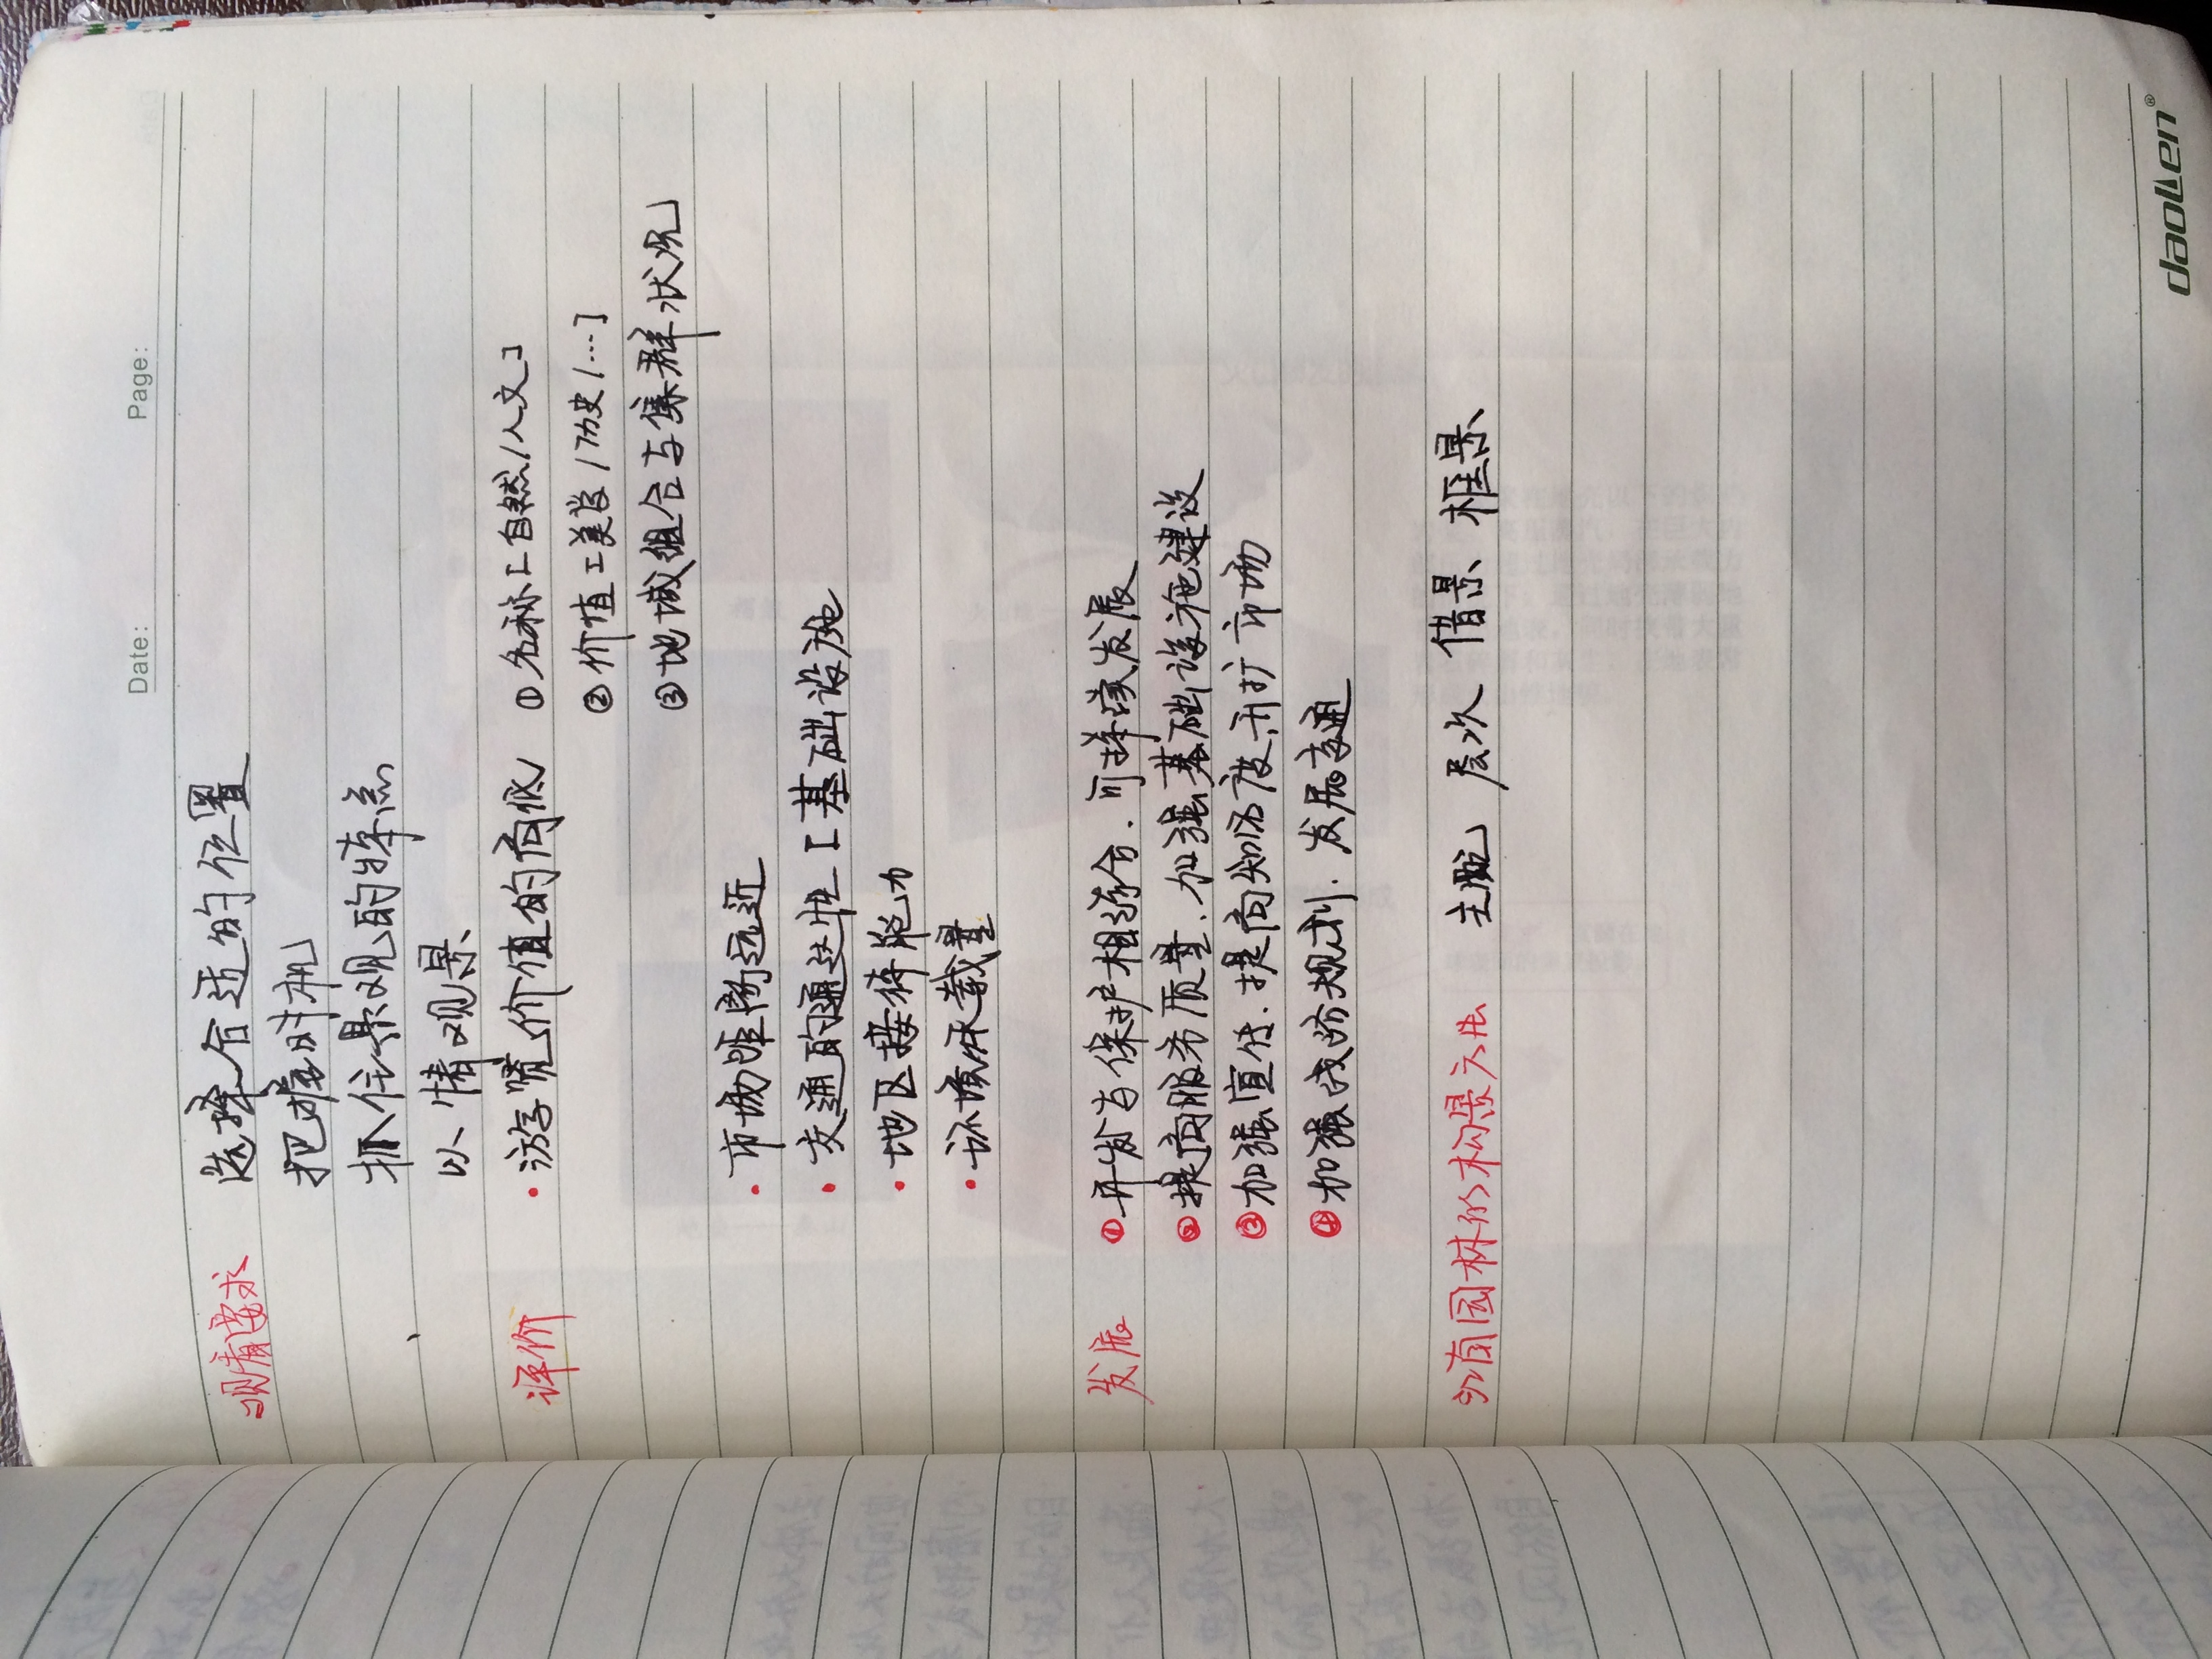 Date: Page:
观看要求 选择合适的位置
把握时机
抓住景观的特点
以情观景
评价 · 游览价值的高低 ① 名称[自然/人文]
② 价值[美学/历史/…]
③ 地域组合与集群状况
· 市场距离远近
· 交通的通达性[基础设施
· 地区接待能力
· 环境承载量
发展 ① 开发与保护相结合.可持续发展
② 提高服务质量.加强基础设施建设
③ 加强宣传.提高知名度,开扩市场
④ 加强 规划.发展交通
江南园林的构景方法 主配 层次 借景 框景
daolen®